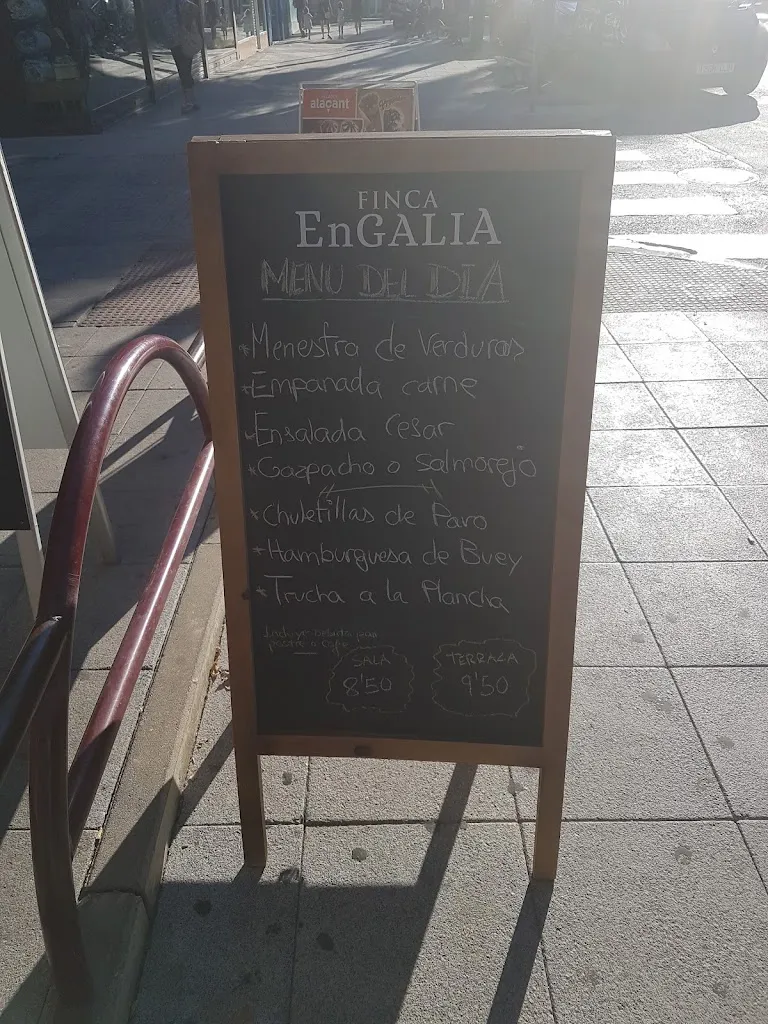 alacant
FINCA
EnGALIA
MENU DEL DIA
*Menestra de Verduras
*Empanada carne
*Ensalada Cesar
*Gazpacho o Salmorejo
*Chuletillas de Pavo
*Hamburguesa de Buey
*Trucha a la Plancha
Incluye bebida pan
postre o cafe
SALA
8'50
TERRAZA
9'50